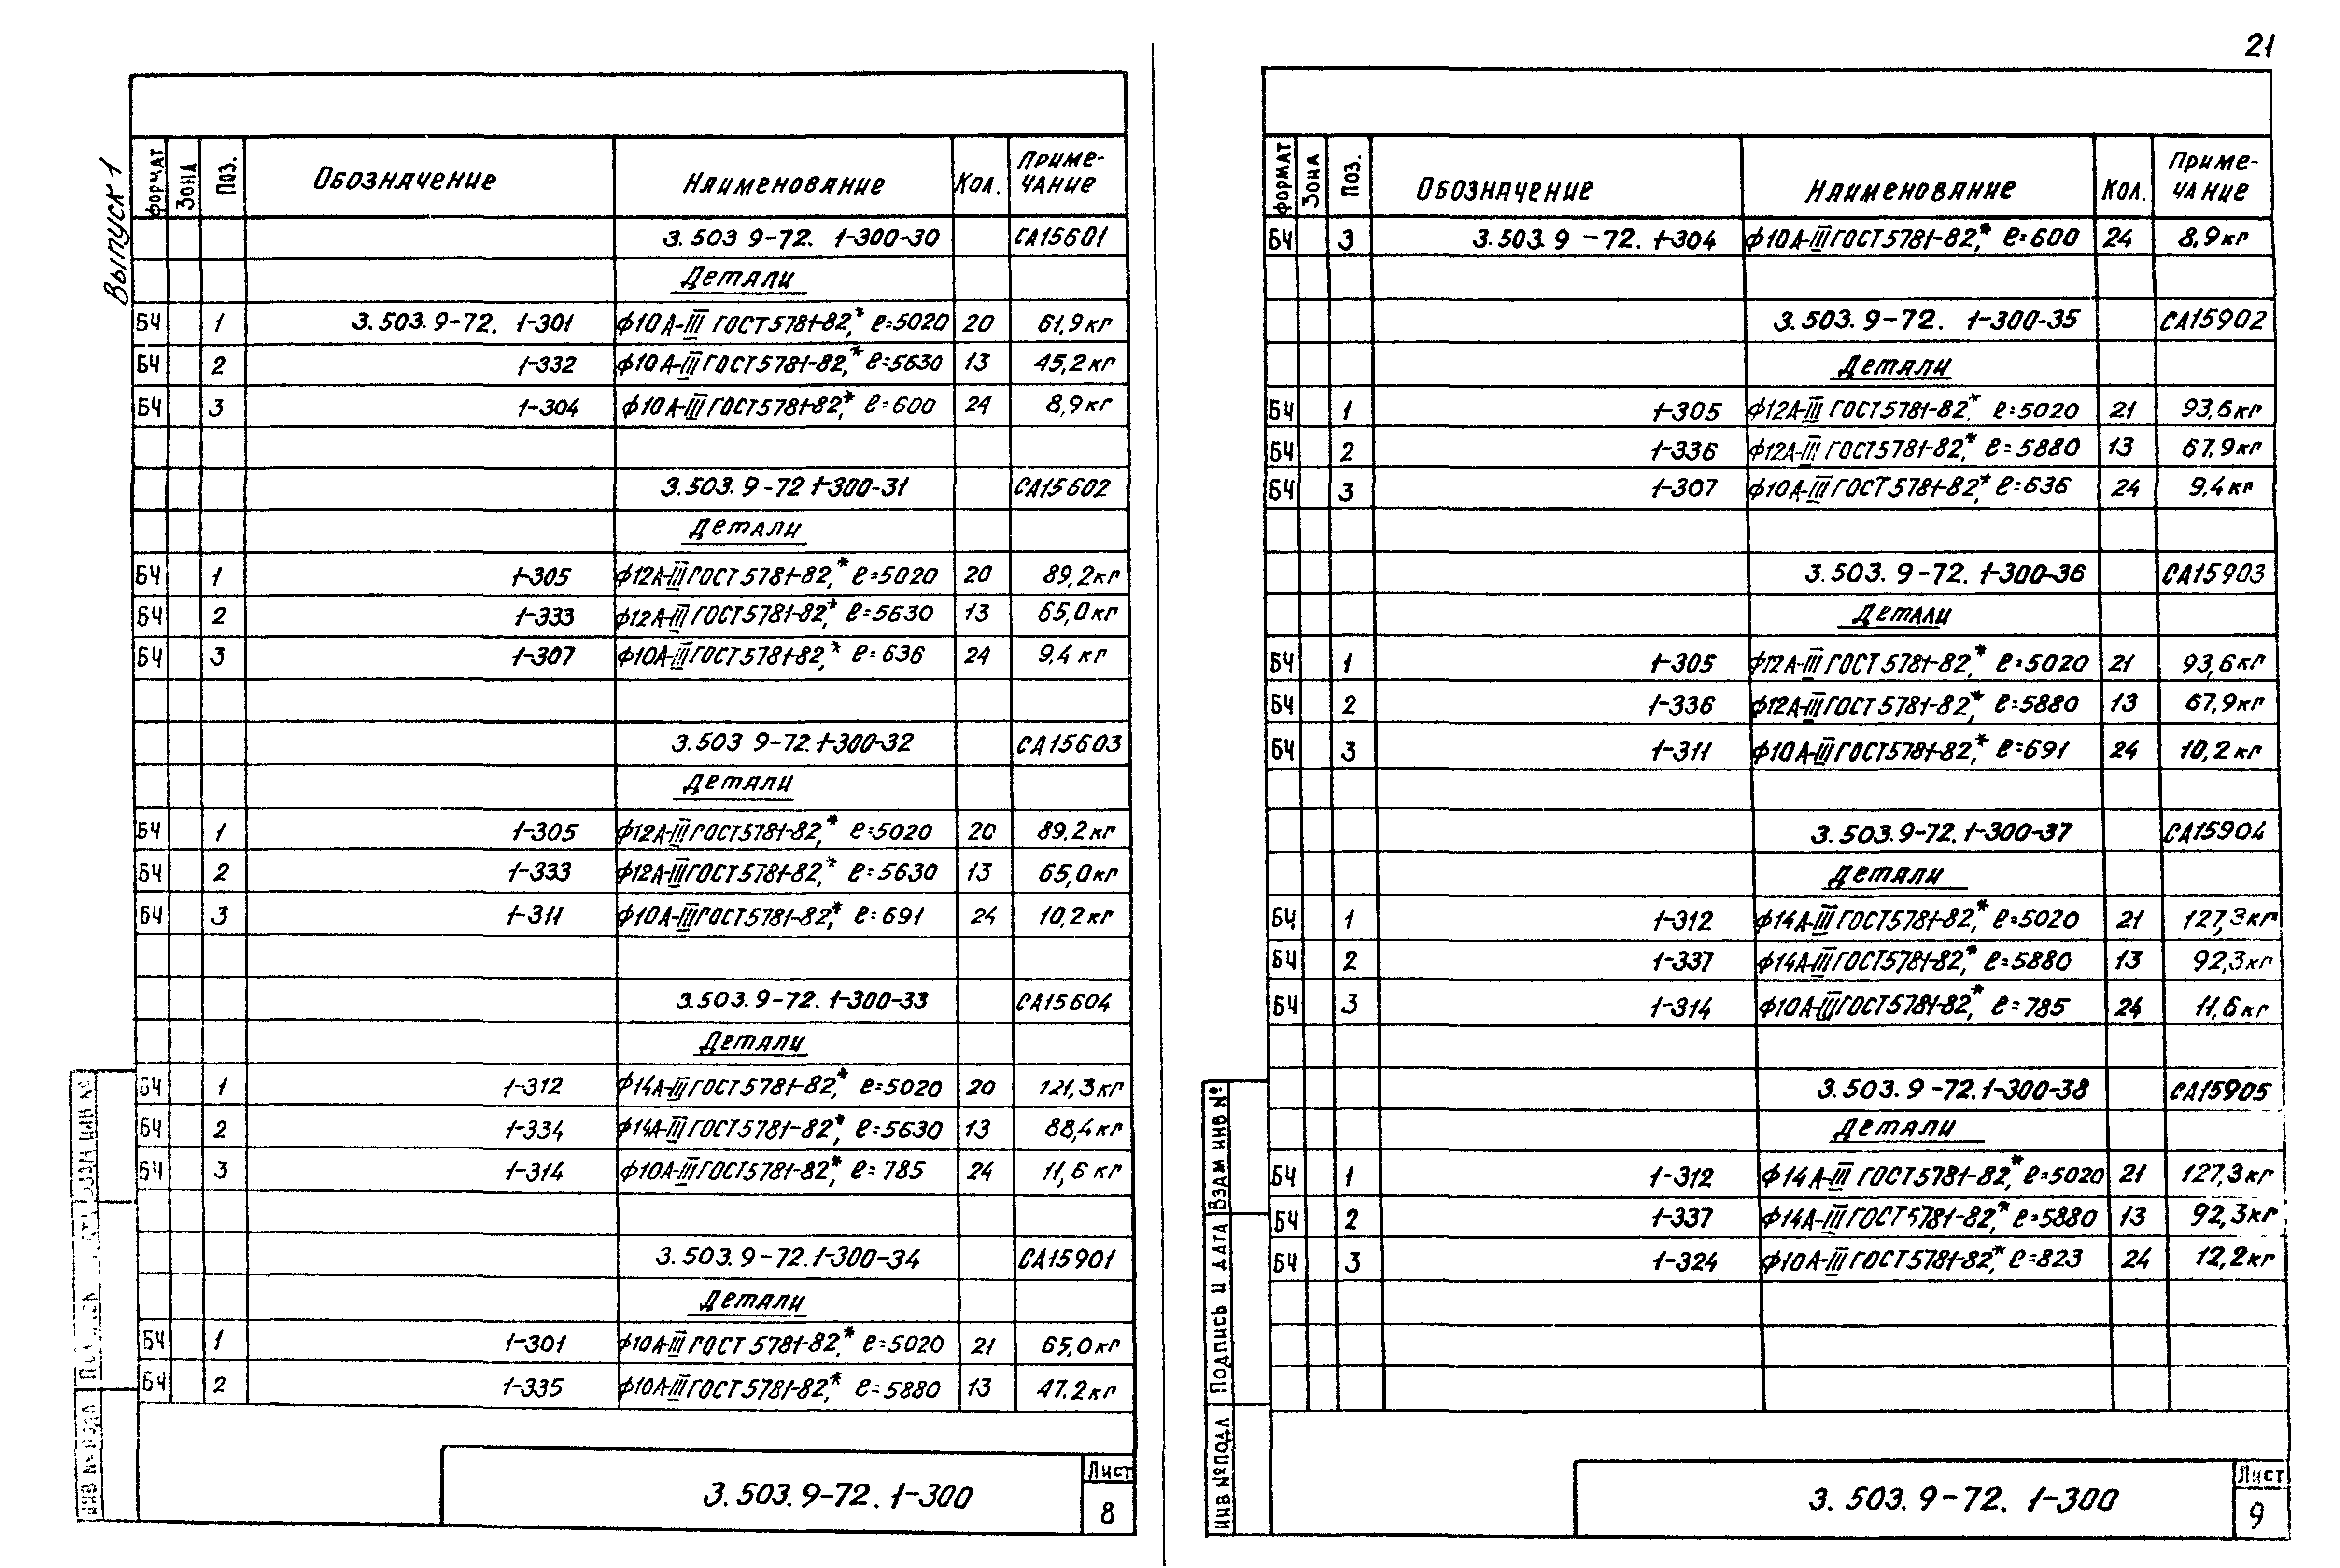 21
Выпуск 1
ФОРМАТ ЗОНА ПОЗ. Обозначение Наименование Кол. Приме-
чание
3.503 9-72. 1-300-30 СА15601
Детали
БЧ 1 3.503.9-72. 1-301 ф10А-III ГОСТ5781-82,* ℓ=5020 20 61,9кг
БЧ 2 1-332 ф10А-III ГОСТ5781-82,* ℓ=5630 13 45,2кг
БЧ 3 1-304 ф10А-III ГОСТ5781-82,* ℓ=600 24 8,9кг
3.503.9-72 1-300-31 СА15602
Детали
БЧ 1 1-305 ф12А-III ГОСТ5781-82,* ℓ=5020 20 89,2кг
БЧ 2 1-333 ф12А-III ГОСТ5781-82,* ℓ=5630 13 65,0кг
БЧ 3 1-307 ф10А-III ГОСТ5781-82,* ℓ=636 24 9,4 кг
3.503 9-72.1-300-32 СА15603
Детали
БЧ 1 1-305 ф12А-III ГОСТ5781-82,* ℓ=5020 20 89,2кг
БЧ 2 1-333 ф12А-III ГОСТ5781-82,* ℓ=5630 13 65,0кг
БЧ 3 1-311 ф10А-III ГОСТ5781-82,* ℓ=691 24 10,2кг
3.503.9-72.1-300-33 СА15604
Детали
БЧ 1 1-312 ф14А-III ГОСТ5781-82,* ℓ=5020 20 121,3кг
БЧ 2 1-334 ф14А-III ГОСТ5781-82,* ℓ=5630 13 88,4кг
БЧ 3 1-314 ф10А-III ГОСТ5781-82,* ℓ=785 24 11,6 кг
3.503.9-72.1-300-34 СА15901
Детали
БЧ 1 1-301 ф10А-III ГОСТ 5781-82,* ℓ=5020 21 65,0кг
БЧ 2 1-335 ф10А-III ГОСТ5781-82,* ℓ=5880 13 47.2кг
ВЗАМ ИНВ №
ИНВ № подл
3.503.9-72.1-300
Лист
8
ФОРМАТ ЗОНА ПОЗ. Обозначение Наименование Кол. Приме-
чание
БЧ 3 3.503.9 -72. 1-304 ф10А-III ГОСТ5781-82,* ℓ=600 24 8,9кг
3.503.9-72. 1-300-35 СА15902
Детали
БЧ 1 1-305 ф12А-III ГОСТ5781-82,* ℓ=5020 21 93,6кг
БЧ 2 1-336 ф12А-III ГОСТ5781-82,* ℓ=5880 13 67,9кг
БЧ 3 1-307 ф10А-III ГОСТ5781-82,* ℓ=636 24 9,4кг
3.503.9-72.1-300-36 СА15903
Детали
БЧ 1 1-305 ф12А-III ГОСТ5781-82,* ℓ=5020 21 93,6кг
БЧ 2 1-336 ф12А-III ГОСТ5781-82,* ℓ=5880 13 67,9кг
БЧ 3 1-311 ф10А-III ГОСТ5781-82,* ℓ=691 24 10,2кг
3.503.9-72.1-300-37 СА15904
Детали
БЧ 1 1-312 ф14А-III ГОСТ5781-82,* ℓ=5020 21 127,3кг
БЧ 2 1-337 ф14А-III ГОСТ5781-82,* ℓ=5880 13 92,3кг
БЧ 3 1-314 ф10А-III ГОСТ5781-82,* ℓ=785 24 11,6кг
3.503.9-72.1-300-38 СА15905
Детали
БЧ 1 1-312 ф14А-III ГОСТ5781-82,* ℓ=5020 21 127,3кг
БЧ 2 1-337 ф14А-III ГОСТ5781-82,* ℓ=5880 13 92,3кг
БЧ 3 1-324 ф10А-III ГОСТ5781-82,* ℓ=823 24 12,2кг
ВЗАМ ИНВ №
Подпись и дата
ИНВ №подл
3.503.9-72. 1-300
Лист
9